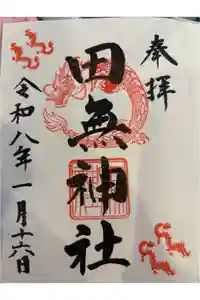 奉拝
田無神社
令和八年一月十六日